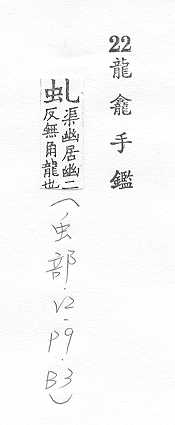 22龍龕手鑑
虬渠幽居幽二反無角龍也(虫部.V2-P9.B3)